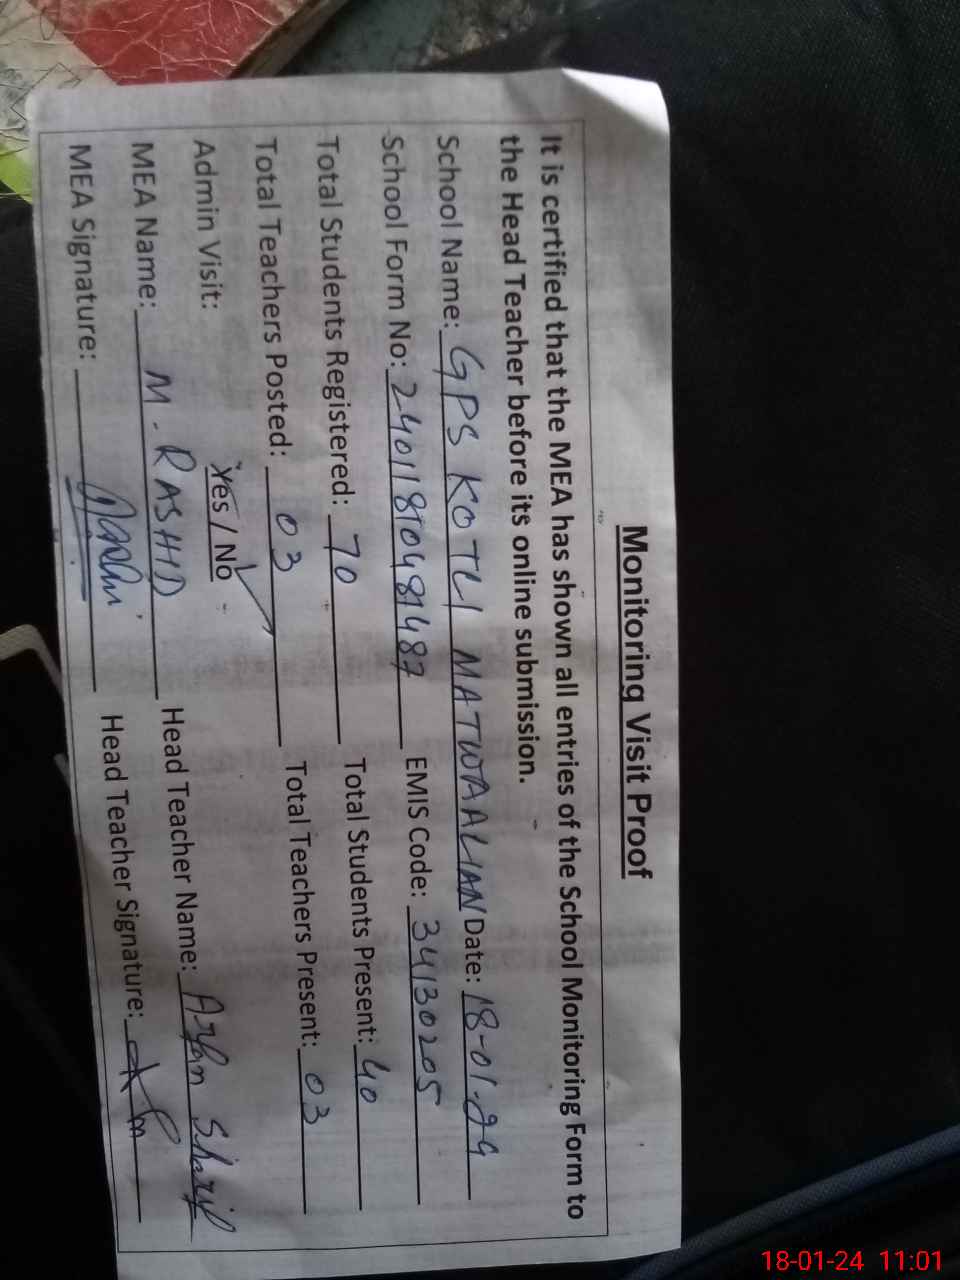 Monitoring Visit Proof
It is certified that the MEA has shown all entries of the School Monitoring Form to
the Head Teacher before its online submission.
School Name: GPS KOTLI MATWAALIAN Date: 18-01-24
School Form No: 24011810481487 EMIS Code: 34130205
Total Students Registered: 70 Total Students Present: 40
Total Teachers Posted: 03 Total Teachers Present: 03
Admin Visit: Yes / No
MEA Name: M. RASHID Head Teacher Name: Arfan Sharif
MEA Signature: Head Teacher Signature:
18-01-24 11:01